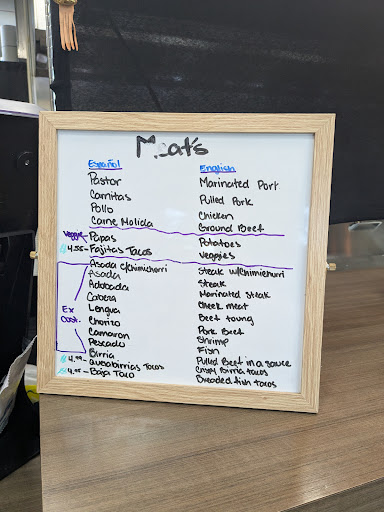 Meat's
Español English
Pastor Marinated Pork
Carnitas Pulled Pork
Pollo Chicken
Carne Molida Ground Beef
Veggie Papas Potatoes
$4.35 - Fajitas Tacos Veggies
Asada c/chimichurri Steak w/chimichurri
Asada Steak
Adobada Marinated Steak
Cabeza Cheek meat
Lengua Beef toung
Ex Cost. Chorizo Pork Beef
Camaron Shrimp
Pescado Fish
Birria Pulled Beef in a sauce
$4.99 - Quesobirrias Tacos Crispy Birria tacos
$4.95 - Baja Taco Breaded fish tacos